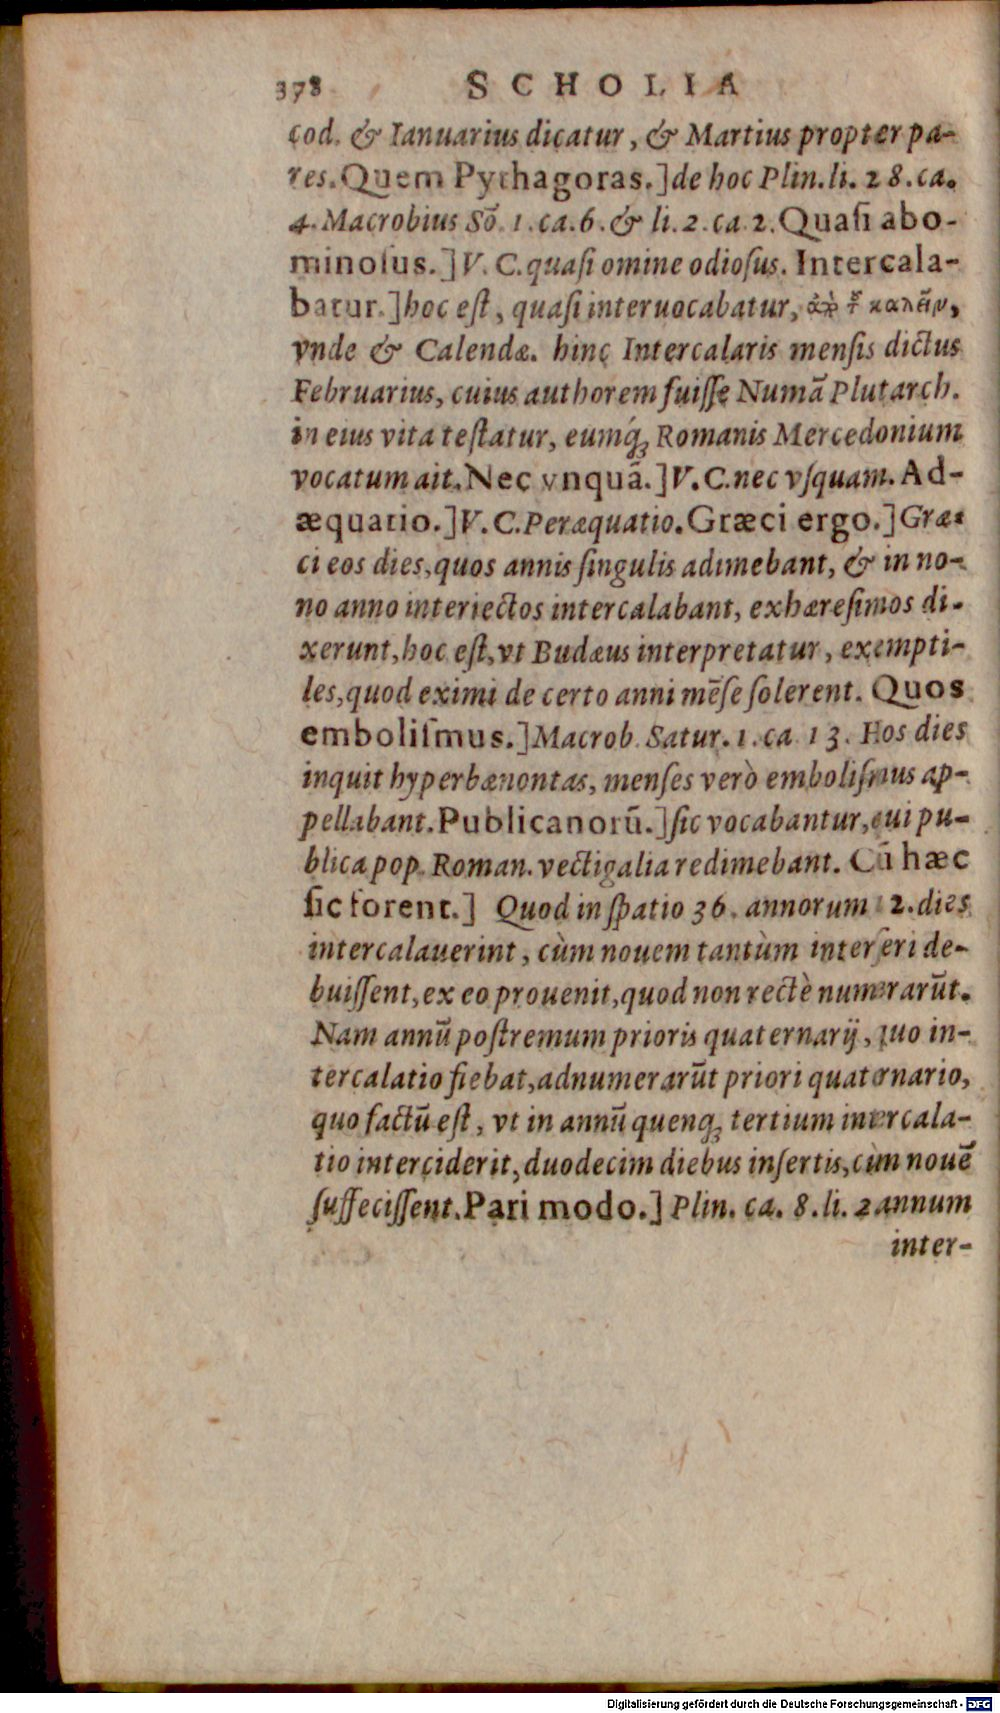 378 SCHOLIA
cod. & Ianuarius dicatur, & Martius propter pa-
res. Quem Pythagoras.] de hoc Plin. li. 28. ca.
4. Macrobius Sō. 1. ca. 6. & li. 2. ca. 2. Quasi abo-
minosus.] V. C. quasi omine odiosus. Intercala-
batur.] hoc est, quasi interuocabatur, καλεῖν,
vnde & Calendæ. hinc Intercalaris mensis dictus
Februarius, cuius authorem fuisse Numā Plutarch.
in eius vita testatur, eumq́; Romanis Mercedonium
vocatum ait. Nec vnquā.] V. C. nec vsquam. Ad-
æquatio.] V. C. Peræquatio. Græci ergo.] Græ-
ci eos dies, quos annis singulis adimebant, & in no-
no anno interiectos intercalabant, exhæresimos di-
xerunt, hoc est, vt Budæus interpretatur, exempti-
les, quod eximi de certo anni mēse solerent. Quos
embolismus.] Macrob. Satur. 1. ca. 13. Hos dies
inquit hyperbænontas, menses verò embolismus ap-
pellabant. Publicanorū.] sic vocabantur, qui pu-
blica pop. Roman. vectigalia redimebant. Cū hæc
sic forent.] Quod in spatio 36. annorum 12. dies
intercalauerint, cùm nouem tantùm interseri de-
buissent, ex eo prouenit, quod non rectè numerarūt.
Nam annū postremum prioris quaternarij, quo in-
tercalatio fiebat, adnumerarūt priori quaternario,
quo factū est, vt in annū quenq; tertium intercala-
tio interciderit, duodecim diebus insertis, cùm nouē
suffecissent. Pari modo.] Plin. ca. 8. li. 2 annum
inter-
Digitalisierung gefördert durch die Deutsche Forschungsgemeinschaft - DFG